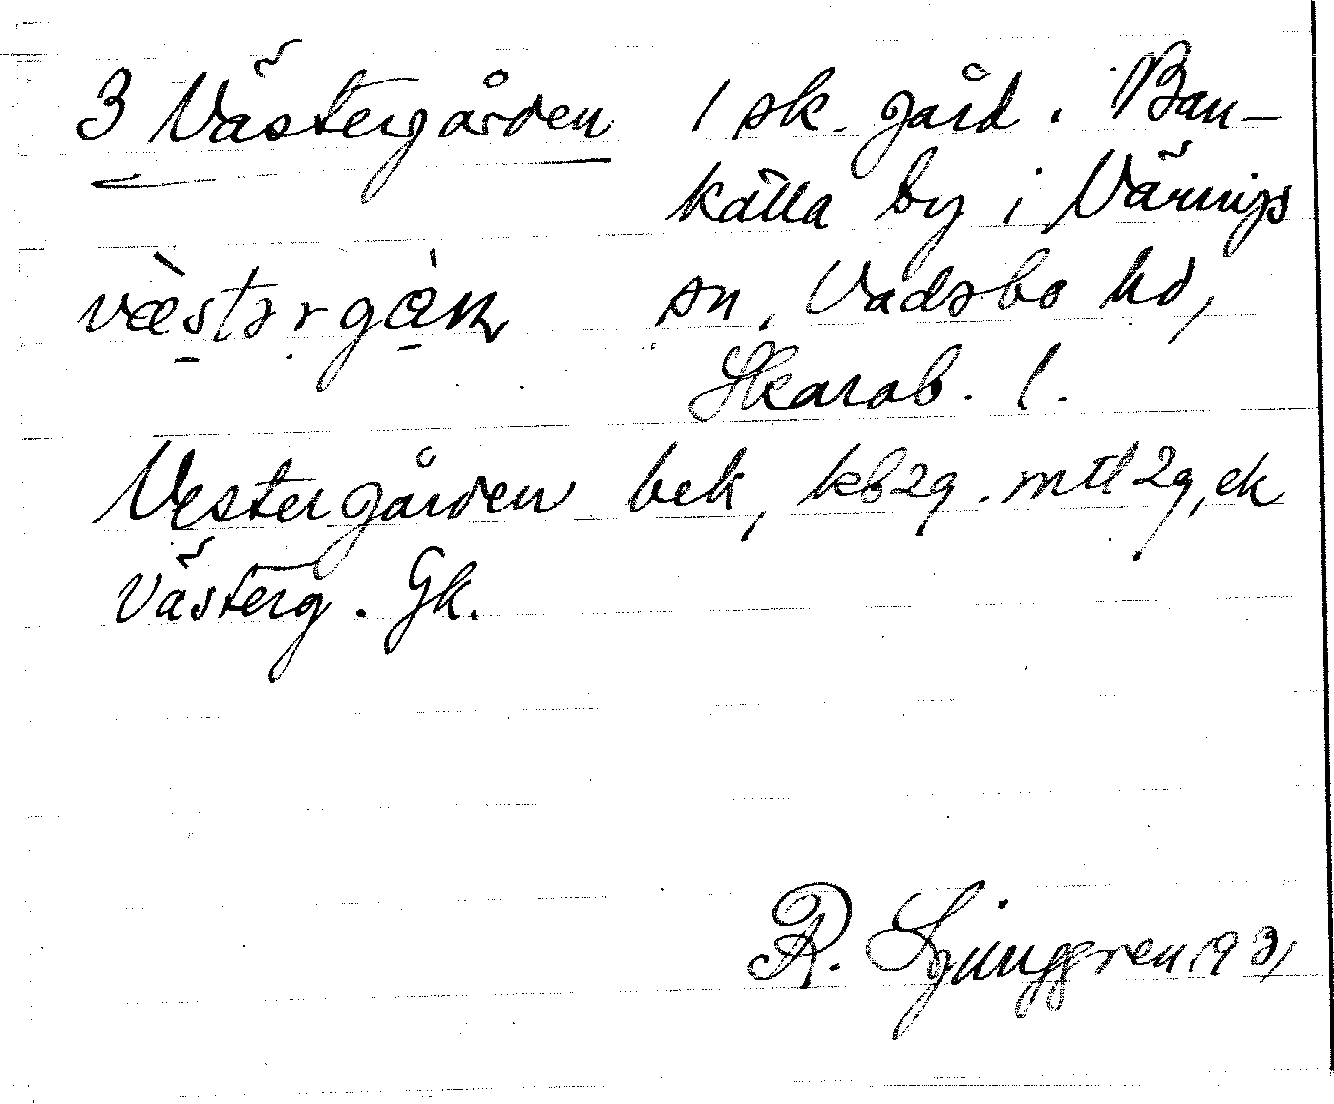 3 Västergården 1 sk. gård. Ban-
källa by i Värnigs
væstərgán sn, Vadsbo hd,
Skarab. l.
Vestergården bek, kb2g. mtl 2g, ek
Västerg. Gk.
R. Ljunggren 1931